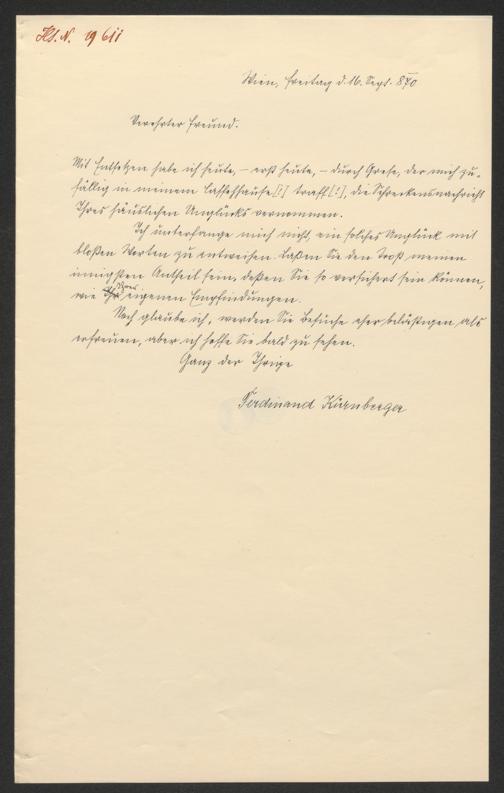 Hs. N. 19611
Wien, Freitag d. 16. Sept. 870
Verehrter Freund.
Mit Entsetzen habe ich heute, – erst heute, – durch Grese, der mich zu-
fällig in meinem Caffehhause [!] traff [!], die Schreckensnachricht
Ihres häuslichen Unglücks vernommen.
Ich unterfange mich nicht, ein solches Unglück mit
bloßen Worten zu entweihen. Laßen Sie den Trost meinen
innigsten Antheil sein, deßen Sie so versichert sein können,
wie Ihrer eigenen Empfindungen.
Noch glaube ich, werden Sie Besuche eher belästigen als
erfreuen, aber ich hoffe Sie bald zu sehen.
Ganz der Ihrige
Ferdinand Kürnberger